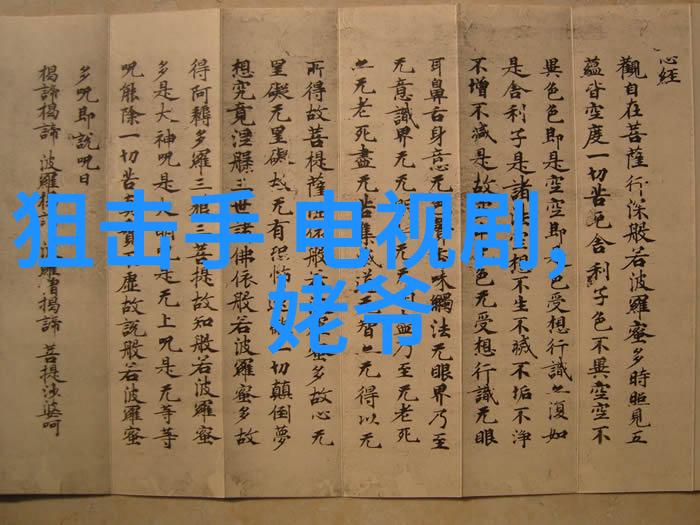 心经
觀自在菩薩行深般若波羅蜜多時照見五
蘊皆空度一切苦厄舍利子色不異空空不
異色色即是空空即色受想行識亦復如
是舍利子是諸法空相不生不滅不垢不淨
不增不減是故色无受想行識无眼
耳鼻舌身意无味觸法无眼界乃至
无意識界无无明盡乃至无老死
亦无老死盡无苦集滅道智亦无得以无
所得故菩提薩埵依般蜜多故心无
罣礙无罣礙故无有恐怖一切顛倒夢
想究竟涅槃三世諸佛依般若波羅蜜多故
得阿耨多羅三藐三菩提故知般若波羅蜜
多是大神呪是大明呪是无上呪是无等等
呪能除一切苦真實不虛故說般若波羅蜜
多呪即說呪曰
揭諦揭諦 波羅揭諦 波羅僧揭諦 菩提娑婆呵
狙击手 电视剧,
姥爷